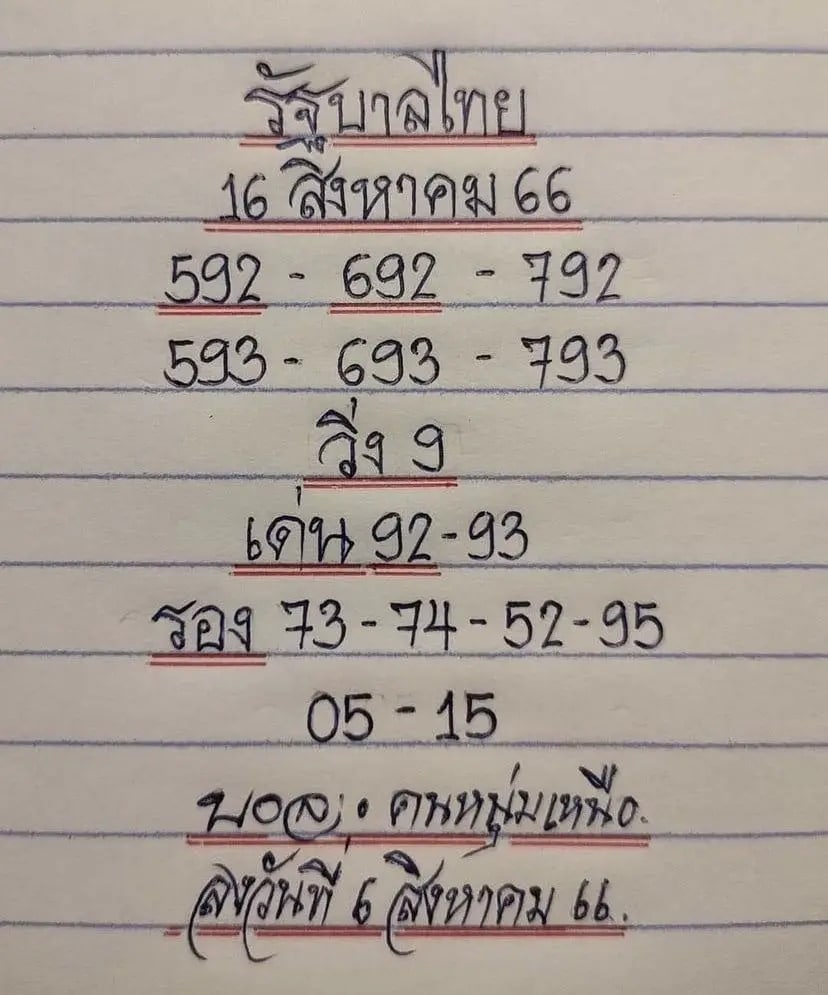 รัฐบาลไทย
16 สิงหาคม 66
592 - 692 - 792
593 - 693 - 793
วิ่ง 9
เด่น 92-93
รอง 73-74-52-95
05 - 15
คนหนุ่มเหนือ.
ลงวันที่ 6 สิงหาคม 66.